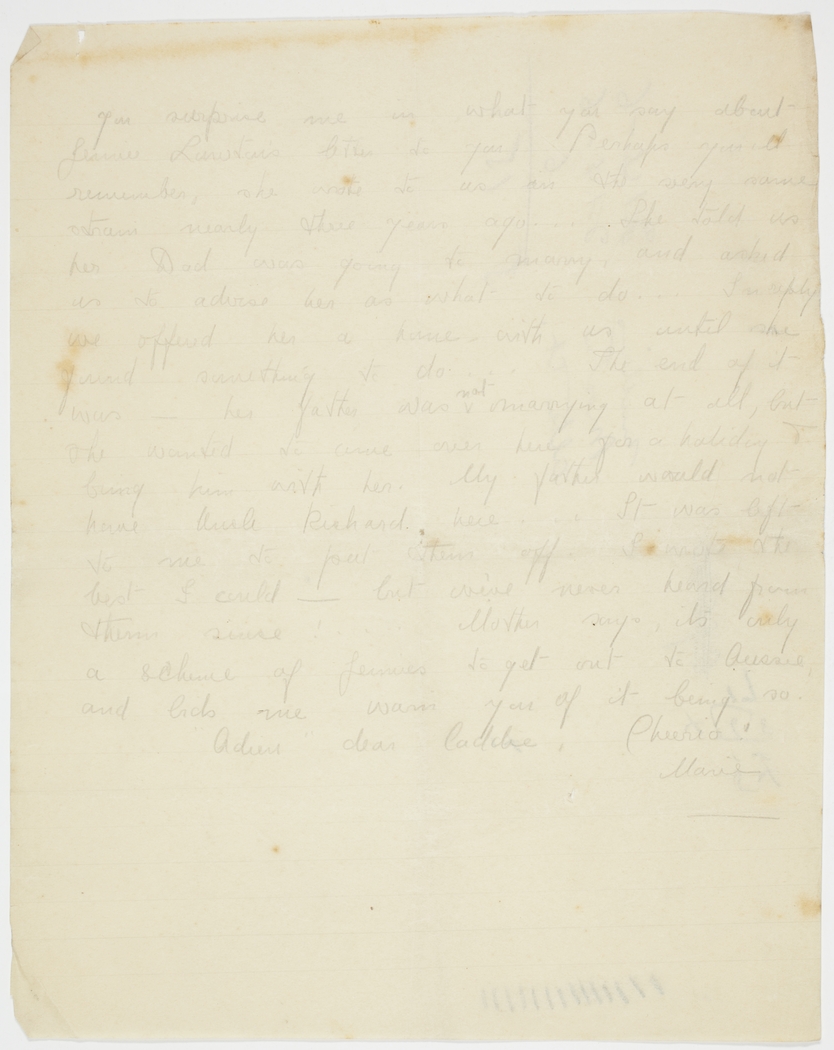 You surprise me in what you say about
Jennie letter to you! Perhaps you'll
remember, she wrote to us in the very same
strain nearly three years ago.... She told us
her Dad was going to marry, and asked
us to advise her as what to do.... In reply
we offered her a home with us until she
found something to do... The end of it
was — her father was not marrying at all, but
she wanted to come over here for a holiday &
bring him with her. My father would not
have Uncle Richard here.... It was left
to me to put them off. I wrote the
best I could — but we've never heard from
them since! .... Mother says, its only
a scheme of Jennies to get out to Aussie,
and bids me warn you of it being so.
"Adieu" dear , Cheerio!
Marie